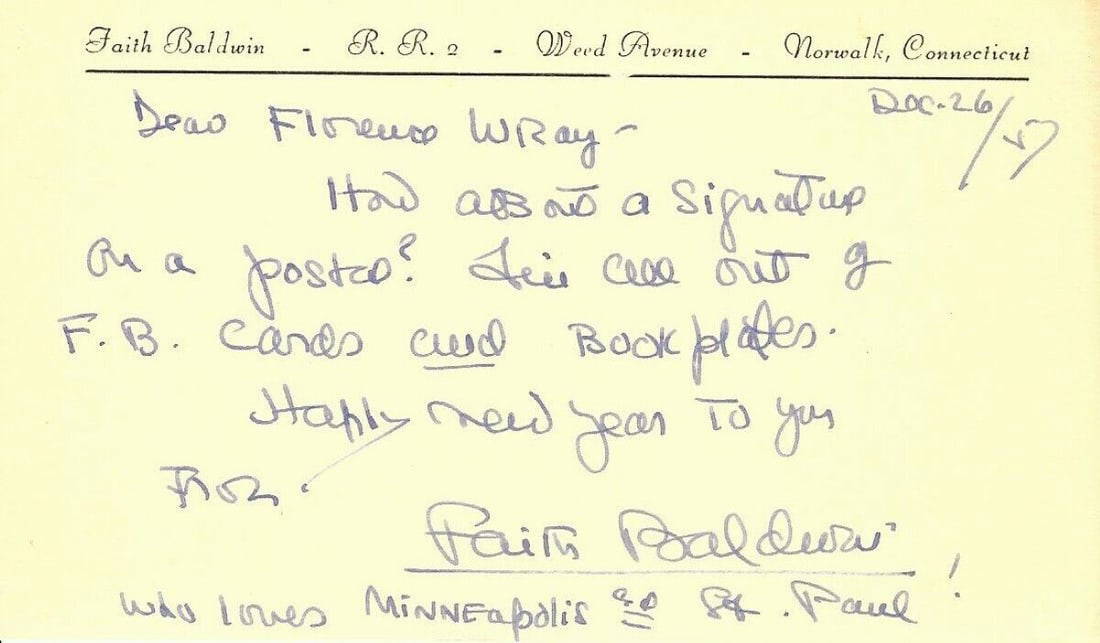 Faith Baldwin - R. R. 2 - Weed Avenue - Norwalk, Connecticut
Dec. 26/57
Dear Florence Wray -
How about a signature
on a postal? I'm all out of
F.B. Cards and Bookplates.
Happy New Year to you
From.
Faith Baldwin
who loves Minneapolis and St. Paul!